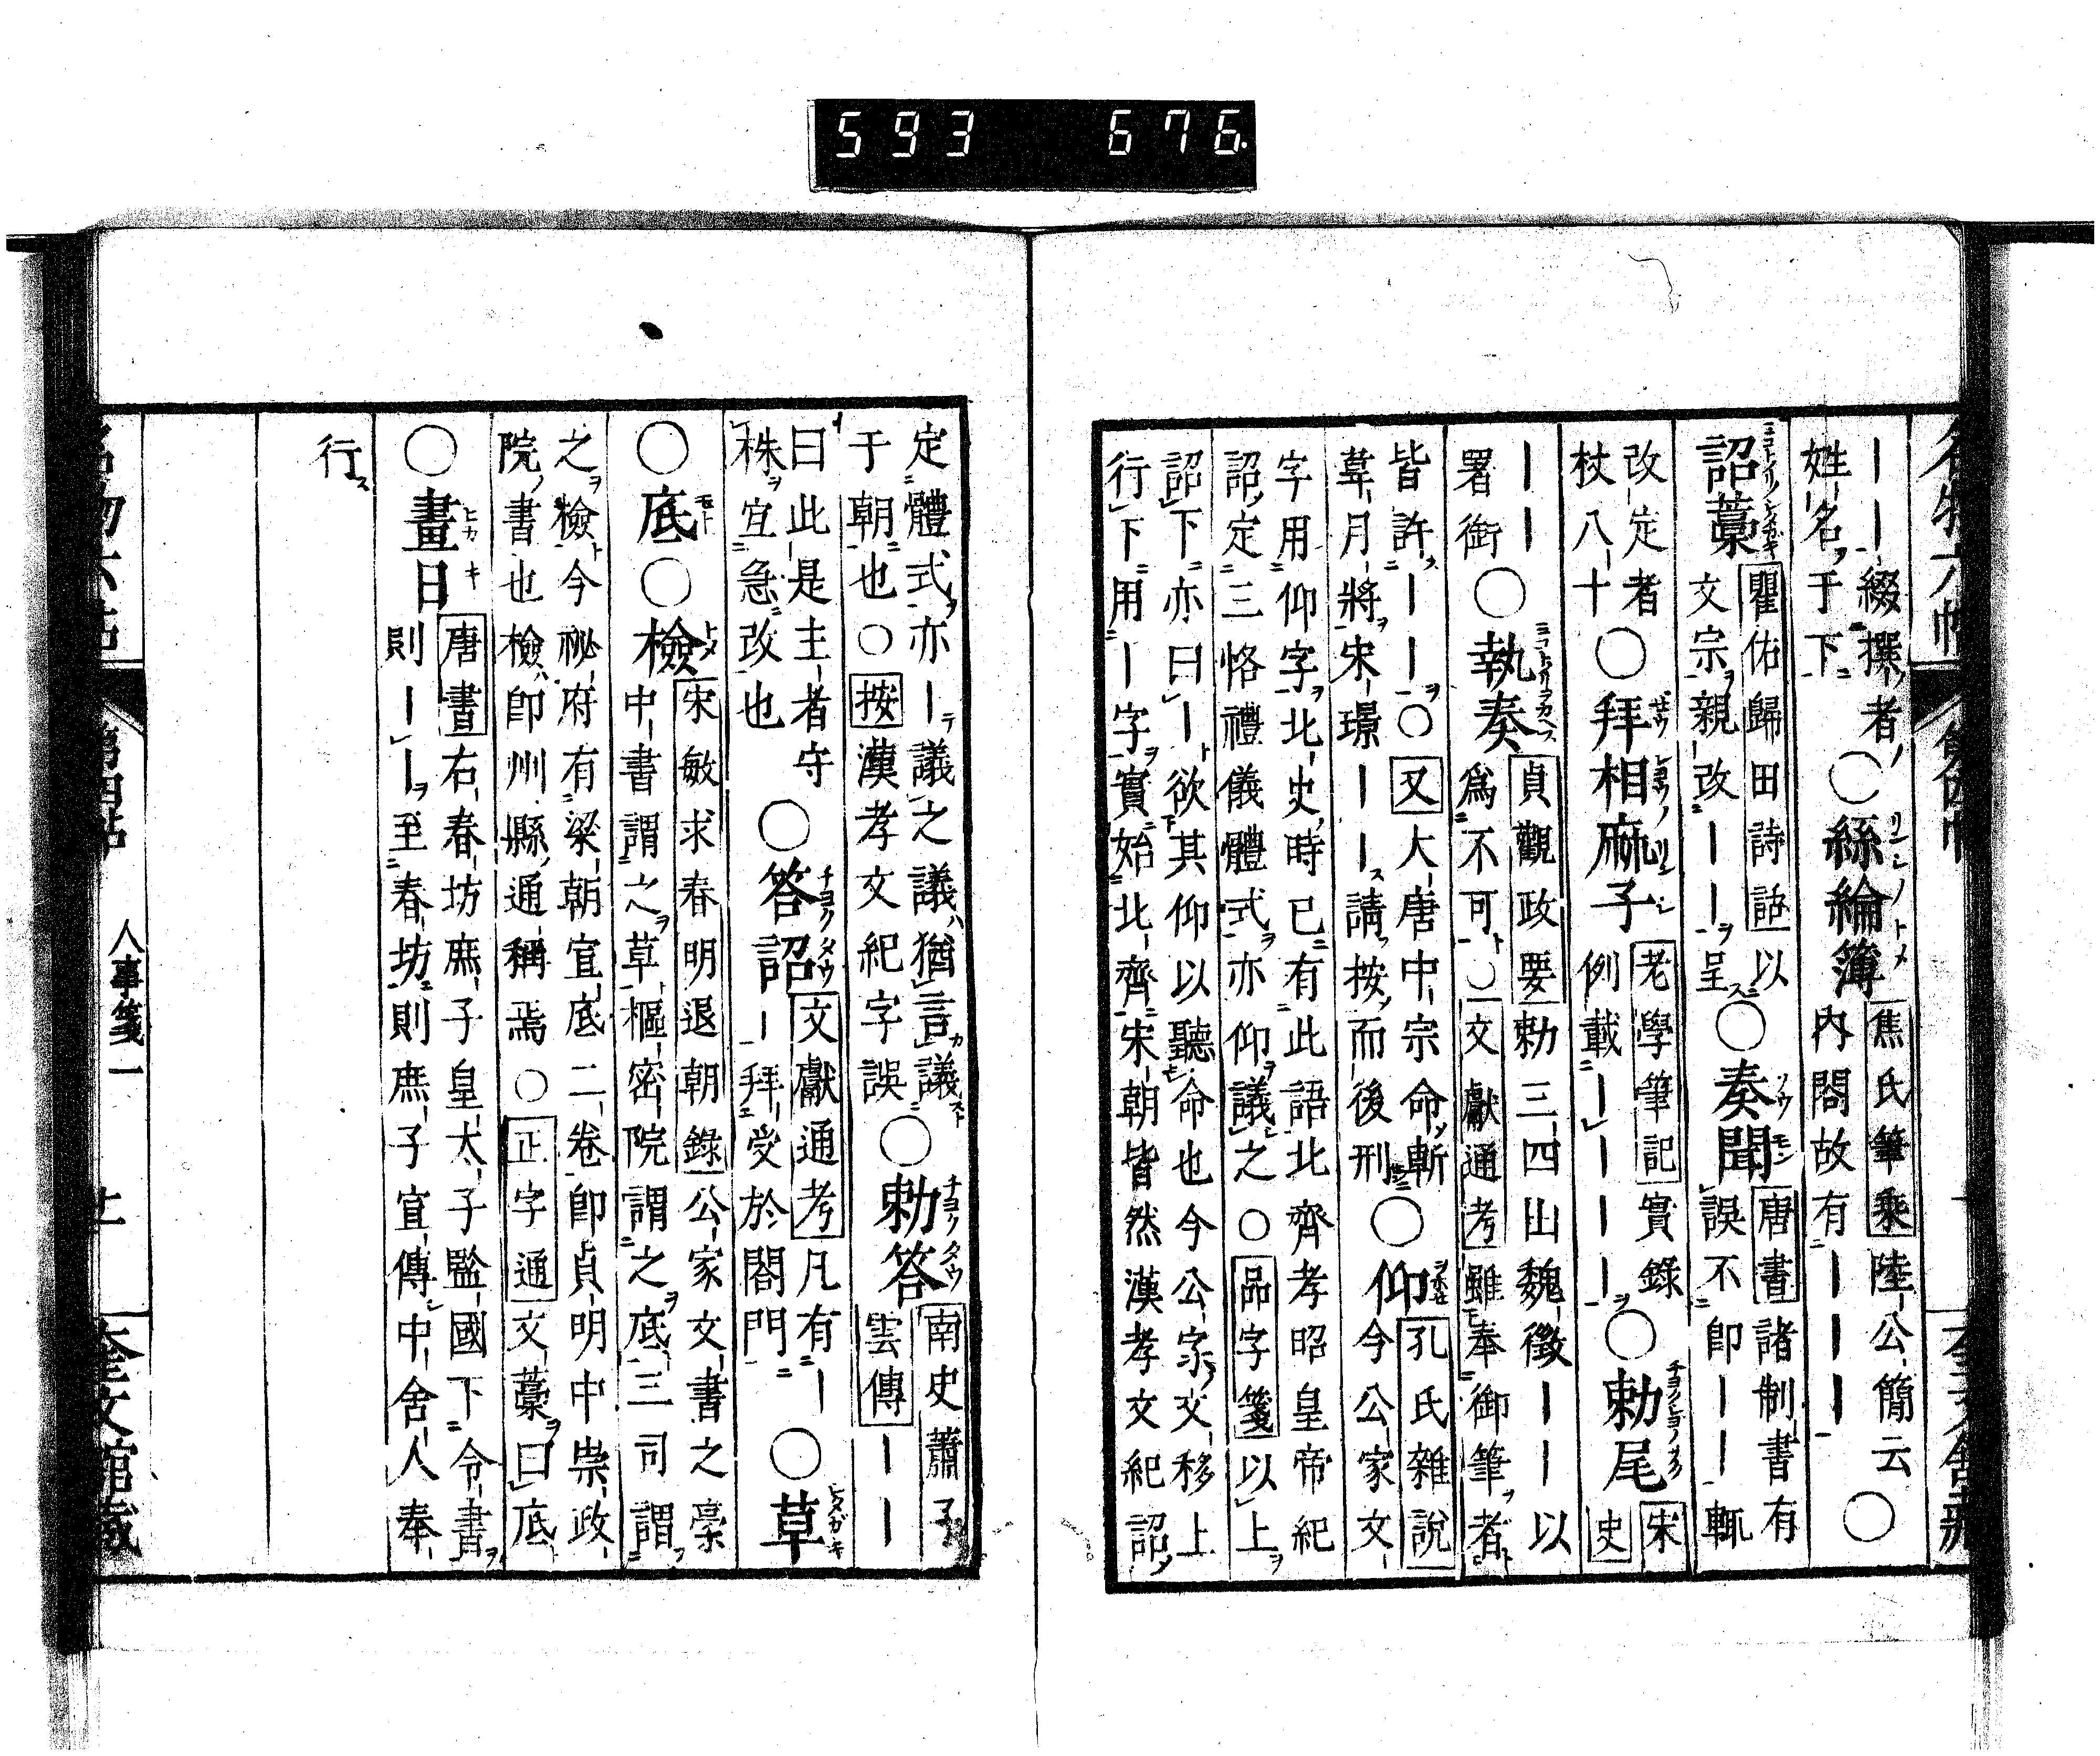 593 676.
｜｜綴撰者
姓名于下 ○絲綸簿 焦氏筆乘陸公簡云
內閣故有｜｜｜ ○
詔藁 瞿佑歸田詩話以
文宗親改｜｜呈 ○奏聞 唐書諸制書有
誤不卽｜｜輒
改定者
杖八十 ○拜相麻子 老學筆記實錄
例載｜｜｜｜ ○勅尾 宋
史
｜｜
署銜 ○執奏 貞觀政要勅三四出魏徵｜｜以
爲不可○文獻通考雖奉御筆者
皆許｜｜○又大唐中宗命斬
韋月將宋璟｜｜請按而後刑 ○仰 孔氏雜說
今公家文
字用仰字北史時已有此語北齊孝昭皇帝紀
詔定三恪禮儀體式亦仰議之○品字箋以上
詔下亦曰｜欲其仰以聽命也今公家文移上
行下用｜字實始北齊宋朝皆然漢孝文紀詔
定體式亦｜議之議猶言議
于朝也○按漢孝文紀字誤 ○勅答 南史蕭子
雲傳｜｜
曰此是主者守
株宜急改也 ○答詔 文獻通考凡有｜
｜拜受於閤門 ○草
○底○檢 宋敏求春明退朝錄公家文書之藁
中書謂之草樞密院謂之底三司謂
之檢今祕府有梁朝宣底二卷卽貞明中崇政
院書也檢卽州縣通稱焉○正字通文藁曰底
○畫日 唐書右春坊庶子皇太子監國下令書
則｜｜至春坊則庶子宣傳中舍人奉
行
人事箋一